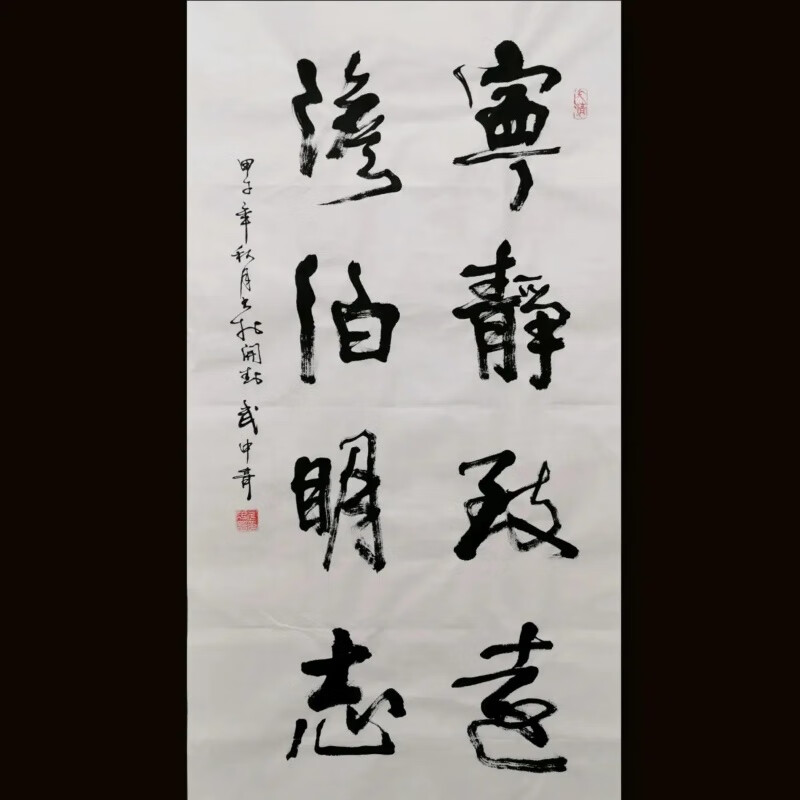 寧靜致遠
澹泊明志
甲子年秋月書於開封 武中奇